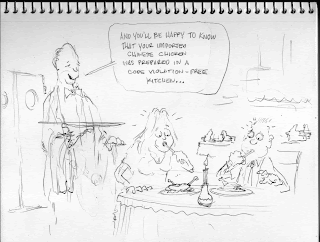 AND YOU'LL BE HAPPY TO KNOW
THAT YOUR IMPORTED
CHINESE CHICKEN
WAS PREPARED IN A
CODE VIOLATION-FREE
KITCHEN...